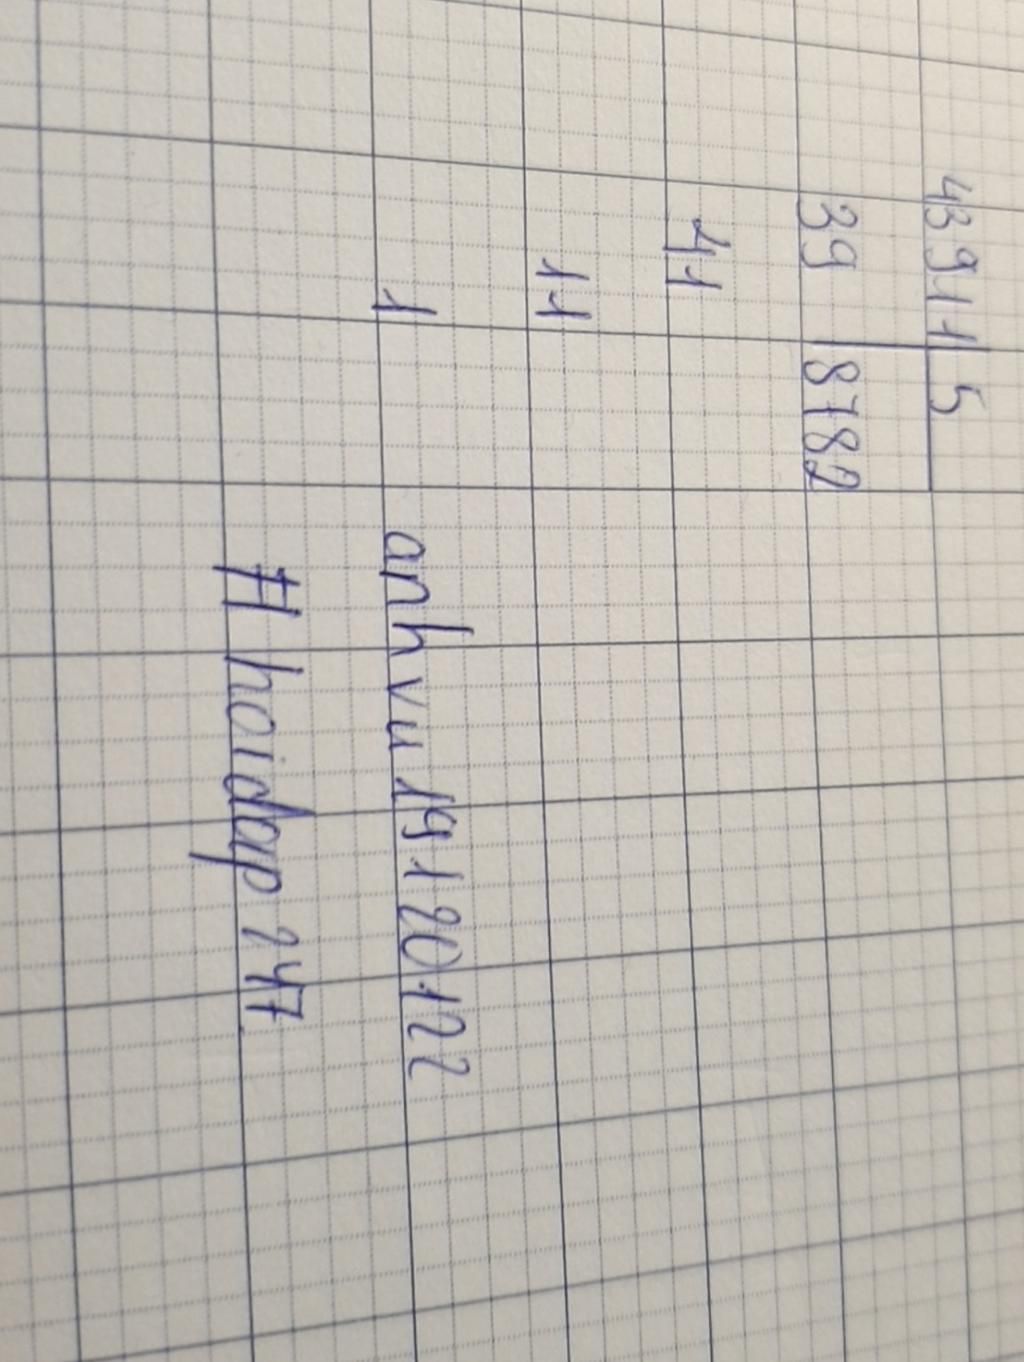 43911 5
39 8782
41
11
1
anhvu19120122
#hoidap247